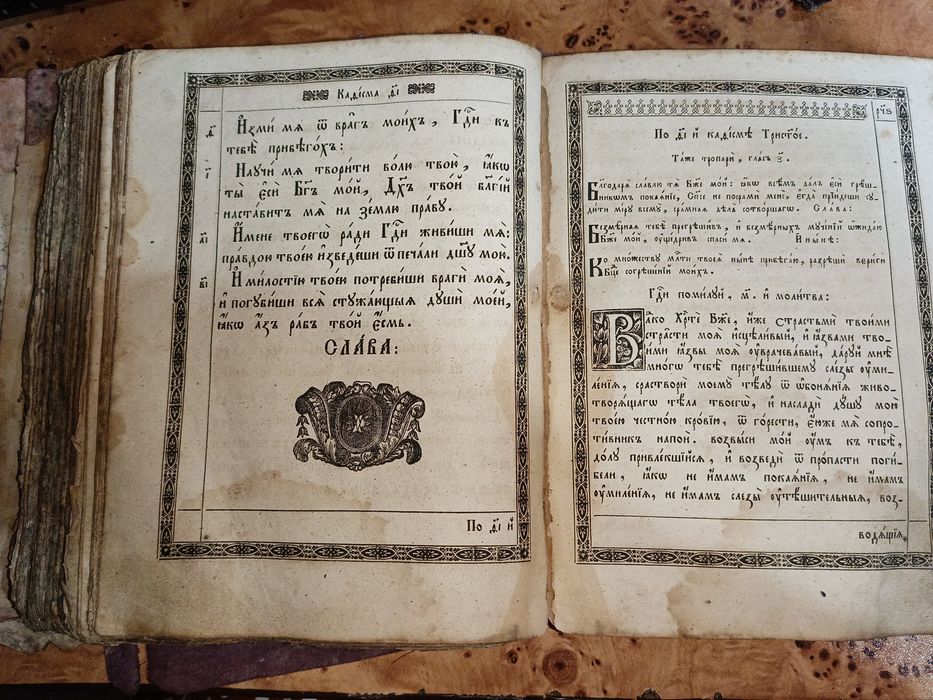 Каѳі́сма ѳ҃і
И҆зми́ мя ѿ вра̑гъ мои́хъ, Гдⷭ҇и къ
тебѣ̀ прибѣго́хъ:
Научи́ мя твори́ти во́лю твою̀, ꙗ҆́кѡ
ты̀ є҆сѝ Бг҃ъ мо́й, Дх҃ъ тво́й бл҃гі́й
наста́витъ мѧ̀ на зе́млю пра́ву.
а҃і И҆́мене твоегѡ̀ ра́ди Гдⷭ҇и живи́ши мя:
пра́вдою твое́ю и҆зведе́ши ѿ печа́ли дш҃у мою̀.
в҃і И҆ ми́лостію твое́ю потреби́ши врагѝ моя̑,
и҆ погуби́ши вся̑ стужа́ющыя душѝ мое́й,
ꙗ҆́кѡ а҆́зъ ра́бъ тво́й є҆́смь.
СЛА́ВА:
По ѳ҃і й
р҃ч҃ѕ
По ѳ҃і й каѳі́смѣ Трист҃о́е.
Та́же тропарѝ, гла́съ з҃.
Благодаря̀ сла́влю тя̀ Бж҃е мо́й: ꙗ҆́кѡ всѣ̑мъ да́лъ є҆сѝ грѣ́ш-
никѡмъ покая́ніе, Сп҃се не посрамѝ менѐ, є҆гда̀ прїи́деши су-
ди́ти мі́ру всему̀, сра̑мная дѣла̀ сотво́ршаго. Сла́ва:
Безмѣ̑рная тебѣ̀ прегрѣши́въ, и҆ безмѣ́рныхъ муче́ній ѡ҆жида́ю
Бж҃е мо́й, ᲂу҆ще́дривъ спасѝ мя. И҆ ны́нѣ:
Ко мно́жеству мл҃ти твоея̀ ны́нѣ прибѣга́ю, разрѣшѝ вери̑ги
Бц҃е согрѣше́ній мои́хъ.
Гдⷭ҇и поми́луй, м҃. и҆ моли́тва:
Влⷣко Хрⷭ҇тѐ Бж҃е, и҆́же страстьмѝ твои́ми
стра̑сти моя̑ и҆сцѣли́вый, и҆ ꙗ҆́звами тво-
и́ми ꙗ҆́звы моя̑ ᲂу҆врачева́вый, да́руй мнѣ̀
мно́гѡ тебѣ̀ прегрѣши́вшему сле́зы ᲂу҆ми-
ле́нія, сраствори́ моему̀ тѣ́лу ѿ ѡ҆боня́нія живо-
творя́щагѡ тѣ́ла твоегѡ̀, и҆ насладѝ ду́шу мою̀
твое́ю честно́ю кро́вію, ѿ го́рести, є҆́юже мя̀ сопро-
ти́вникъ напоѝ. возвы́си мо́й ᲂу҆́мъ къ тебѣ̀,
до́лу привле́кшійся, и҆ возведѝ ѿ про́пасти поги́-
бели, ꙗ҆́кѡ не и҆́мамъ покая́нія, не и҆́мамъ
ᲂу҆миле́нія, не и҆́мамъ слезы̀ ᲂу҆тѣ́шительныя, воз-
водя́щія